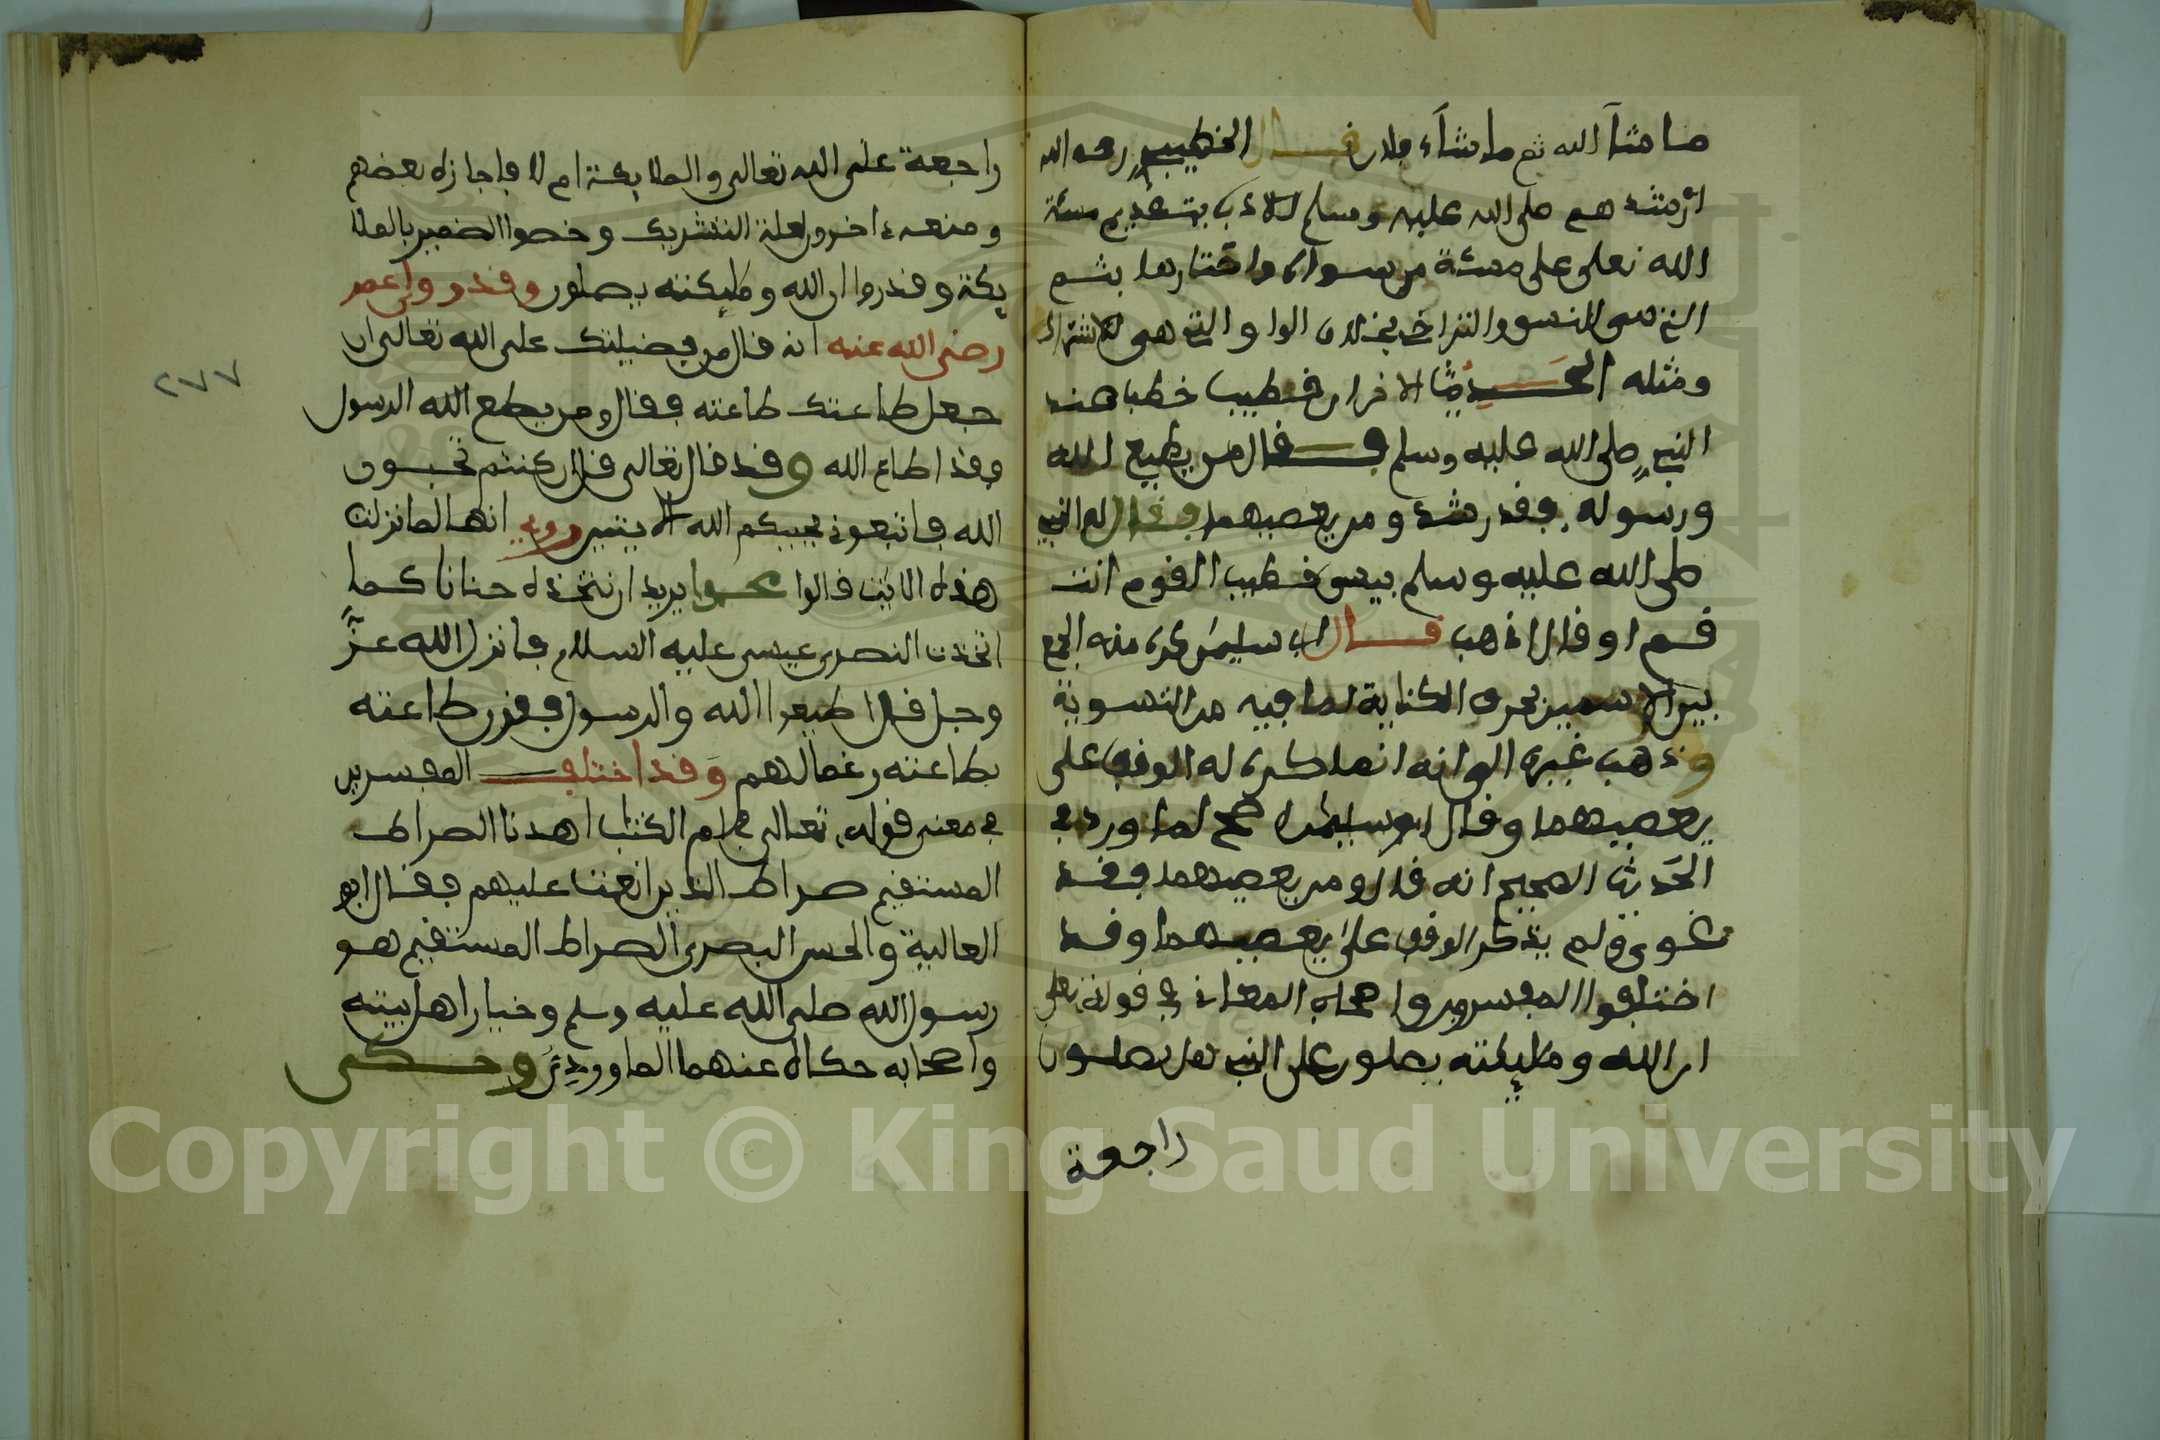 ما شآ الله ثم ما شآء فلان قال الخطيب رحمه الله
ارشدهم صلى الله عليه وسلم للادب بتقديم مشئة
الله تعلى على مشئة من سواه واختارها بثم
التي هي للنسق والتراخي بخلاف الواو التي هي للاشتراك
ومثله الحديث الاخر ان خطيبا خطب عند
النبي صلى الله عليه وسلم فقال من يطيع الله
ورسوله فقد رشد ومن يعصيهما فقال له النبي
صلى الله عليه وسلم بيس خطيب القوم انت
قم او قال اذهب قال ابو سليمن كره منه الجمع
بين الاسمين بحرف الكناية لما فيه من التسوية
وذهب غيره الى انه انما كره له الوقف على
يعصيهما وقال ابو سليمن اصح لما ورد في
الحديث الصحيح انه قال ومن يعصيهما فقد
غوى ولم يذكر الوقف على يعصيهما وقد
اختلفوا المفسرون واصحاب المعاني في قوله تعلى
ان الله ومليكته يصلون على النبي هل يصلون
راجعة
راجعة على الله تعالى والملايكة ام لا فاجازه بعضهم
ومنعه ءاخرون لعلة التشريك وخصوا الضمير بالملا
يكة وقدروا ان الله ومليكته يصلون وقد روي عن عمر
رضي الله عنه انه قال من فضيلتك على الله تعالى ان
جعل طاعتك طاعته فقال ومن يطع الله الرسول
فقد اطاع الله وقد قال تعالى قل ان كنتم تحبون
الله فاتبعوني يحببكم الله الايتين روي انها لما نزلت
هذه الايت قالوا محمدا يريد ان نتخذه حنانا كما
اتخذت النصرى عيسى عليه السلام فانزل الله عز
وجل قل اطيعوا الله والرسول فقرن طاعته
بطاعته رغما لهم وقد اختلف المفسرين
في معنى قوله تعالى في ام الكتاب اهدنا الصراط
المستقيم صراط الذين انعمت عليهم فقال ابو
العالية والحسن البصرى الصراط المستقيم هو
رسول الله صلى الله عليه وسلم وخيار اهل بيته
واصحابه حكاه عنهما الماوردي وحكى
٢٧٧
Copyright © King Saud University